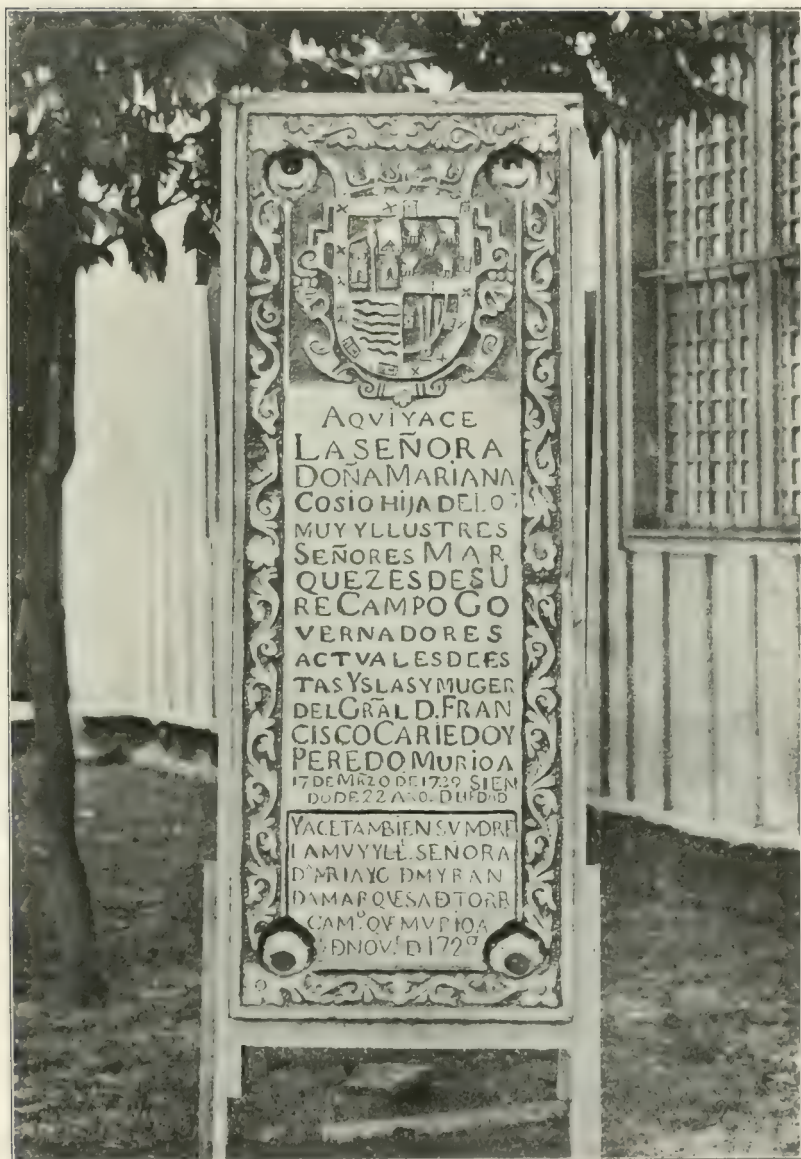 AQVI YACE
LA SEÑORA
DOÑA MARIANA
COSIO HIJA DE LOS
MUY YLLUSTRES
SEÑORES MAR
QUEZES DE SU
RE CAMPO GO
VERNADORES
ACTVALES DE ES
TAS YSLAS Y MUGER
DEL GRÃL D. FRAN
CISCO CARIEDO Y
PEREDO MURIO A
17 DE MRZO DE 1729 SIEN
DO DE 22 AÑO. D HEDAD
YACE TAMBIEN SV MDRE
LA MVY YLLE. SEÑORA
Dª MRIA YG D MYRAN
DA MARQVESA Đ TORR
CAMº QVE MVRIO A
Đ NOV.E D 172